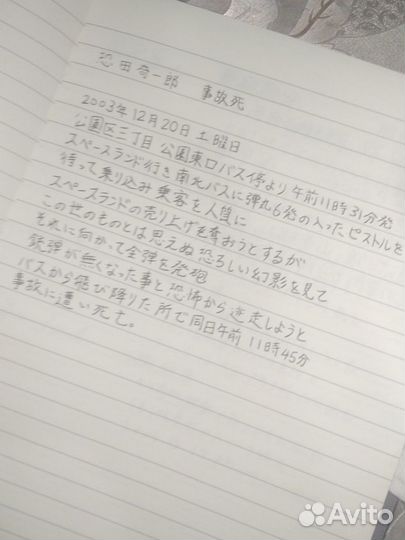 恐田奇一郎 事故死
2003年12月20日 土曜日
公園区三丁目 公園東口バス停より 午前11時31分発
スペースランド行き南北バスに弾丸6発の入ったピストルを
持って乗り込み 乗客を人質に
スペースランドの売り上げを奪おうとするが
この世のものとは思えぬ恐ろしい幻影を見て
それに向かって全弾を発砲
銃弾が無くなった事と恐怖から逃走しようと
バスから飛び降りた所で同日午前 11時45分
事故に遭い死亡。
Avito